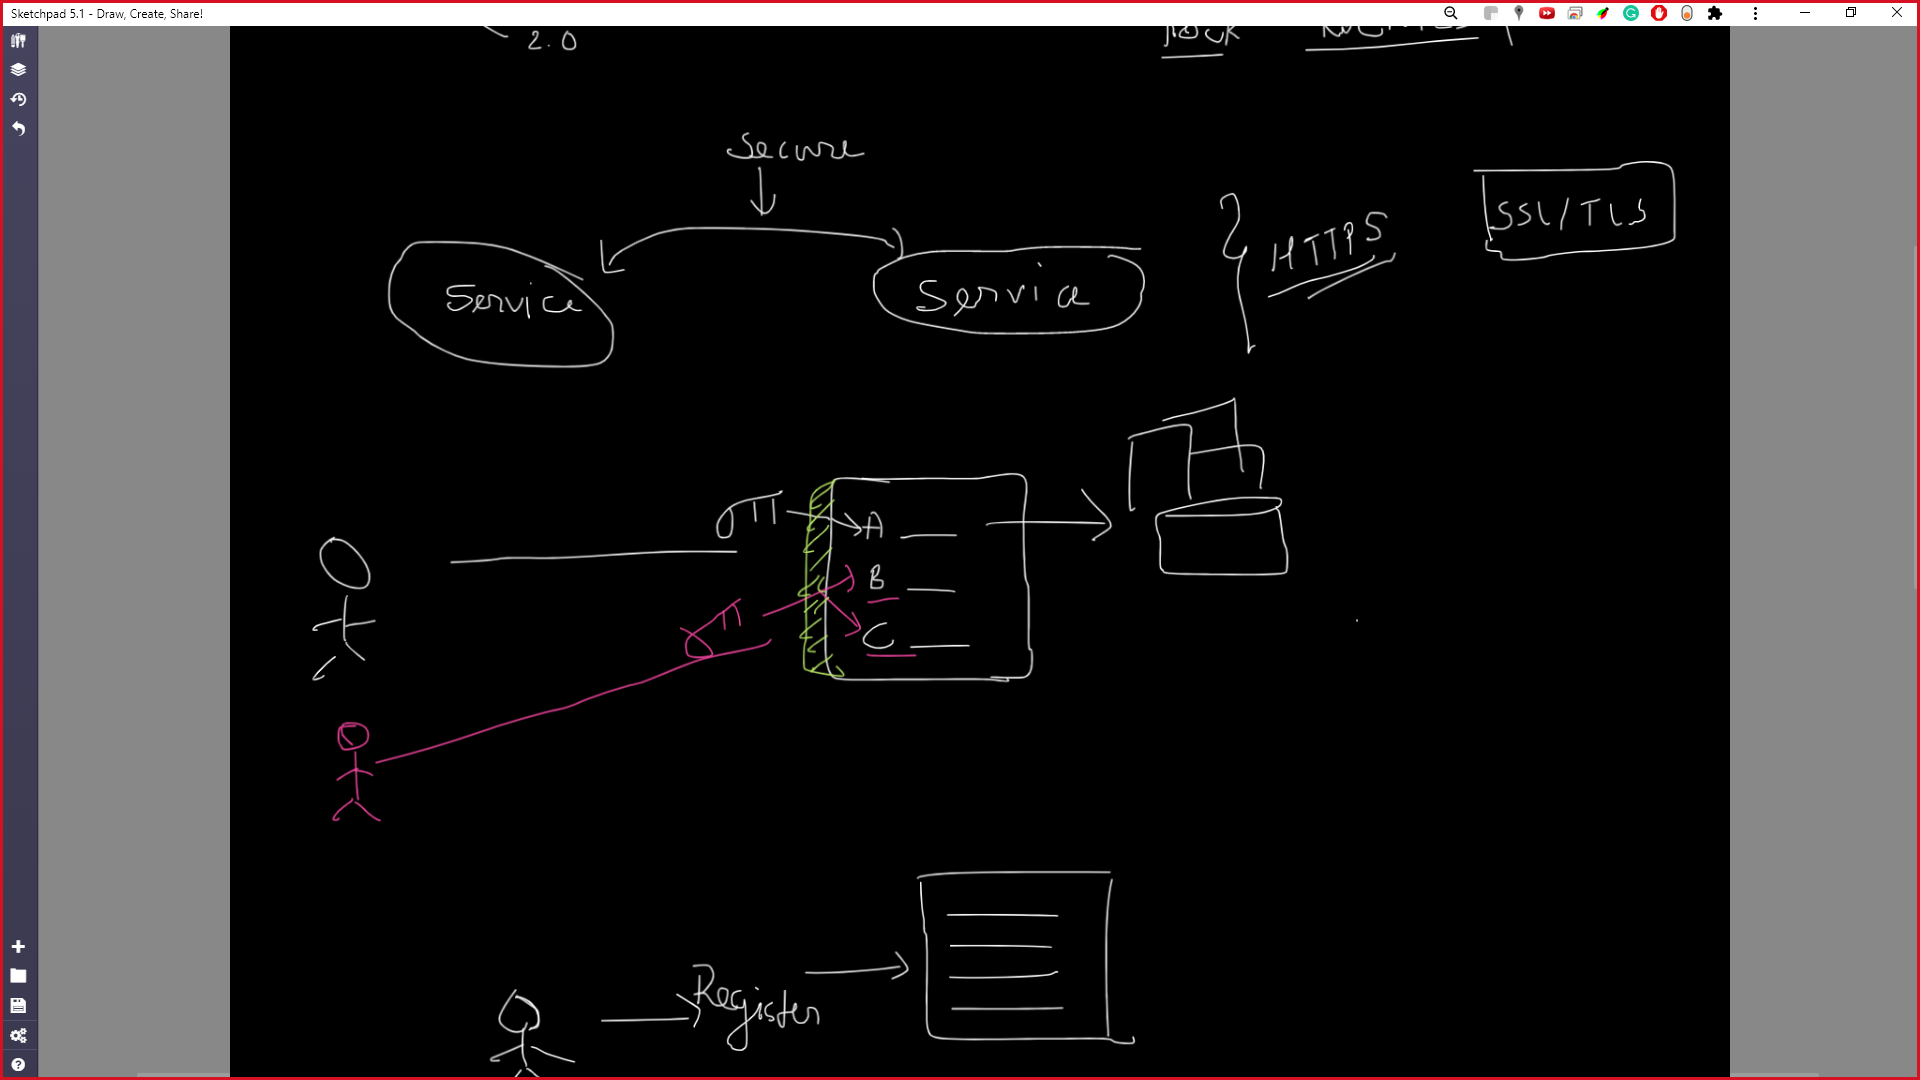 Sketchpad 5.1 - Draw, Create, Share!
2.0
Secure
Service
Service
HTTPS
SSL/TLS
A
B
C
Register